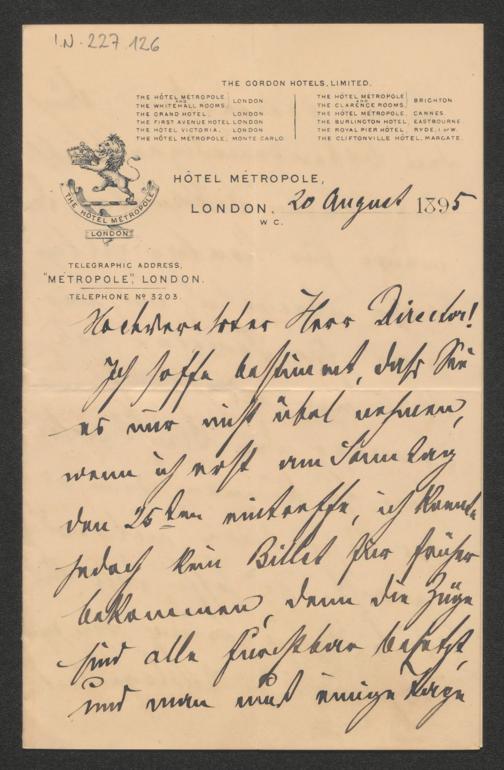 I.N. 227.126
THE GORDON HOTELS, LIMITED.
THE HÔTEL MÉTROPOLE AND THE WHITEHALL ROOMS, LONDON
THE GRAND HOTEL, LONDON
THE FIRST AVENUE HOTEL, LONDON
THE HOTEL VICTORIA, LONDON
THE HÔTEL MÉTROPOLE, MONTE CARLO
THE HÔTEL MÉTROPOLE AND THE CLARENCE ROOMS, BRIGHTON
THE HÔTEL MÉTROPOLE, CANNES
THE BURLINGTON HOTEL, EASTBOURNE
THE ROYAL PIER HÔTEL, RYDE, I. OF W.
THE CLIFTONVILLE HÔTEL, MARGATE.
THE HÔTEL MÉTROPOLE
LONDON
HÔTEL MÉTROPOLE,
LONDON, 20 August 1895
W.C.
TELEGRAPHIC ADDRESS,
"METROPOLE", LONDON.
TELEPHONE No 3203.
Hochverehrter Herr Director!
Ich hoffe bestimmt, dass Sie
es mir nicht übel nehmen,
wenn ich erst am Sonntag
den 25ten eintreffe, ich konnte
jedoch kein Billet für früher
bekommen, denn die Züge
sind alle furchtbar besetzt,
und man muß einige Tage